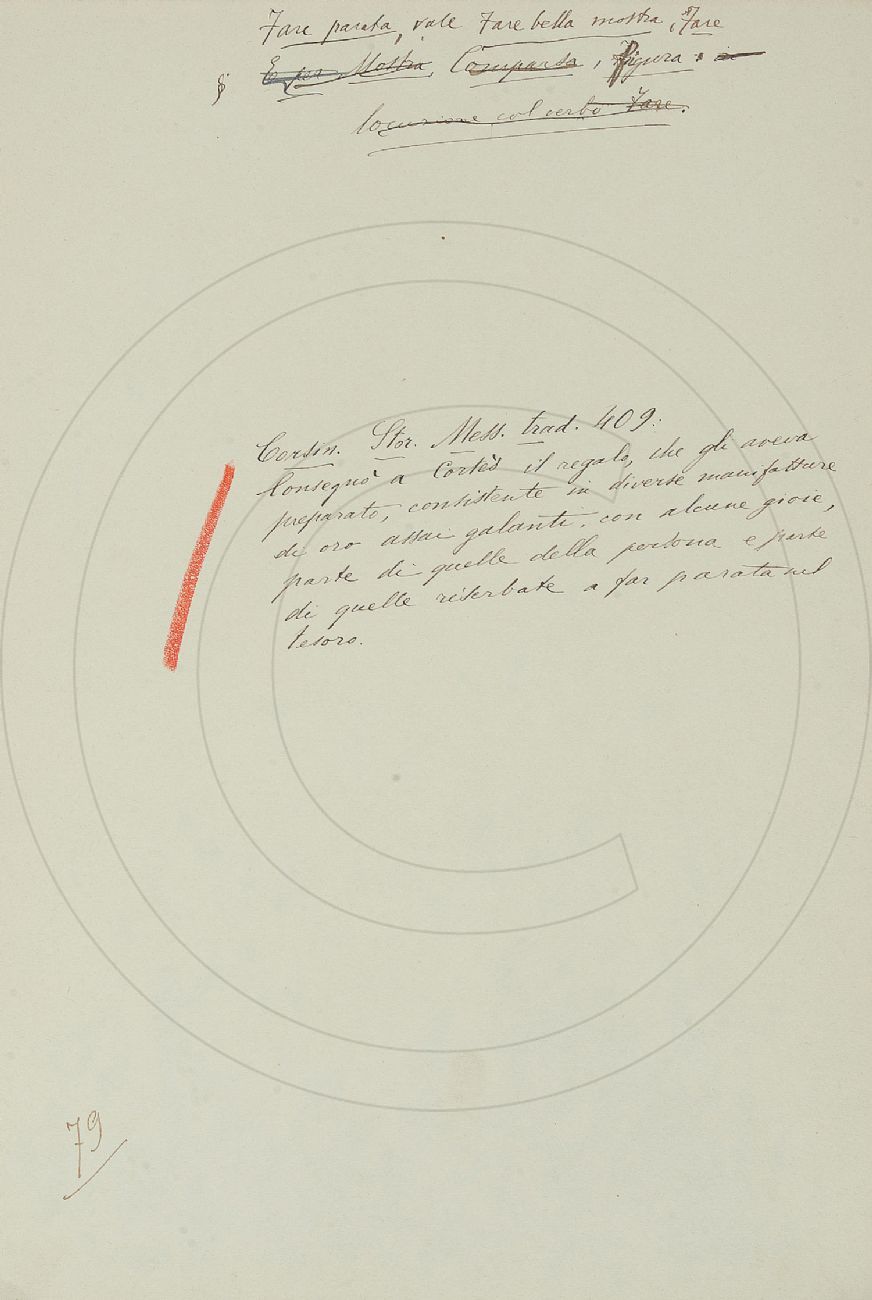 Fare parata, vale Fare bella mostra, Fare
§ E per Mostra, Comparsa, figura: in
locuzione col verbo Fare.
Corsin. Stor. Mess. trad. 409:
Consegnò a Cortès il regalo, che gli aveva
preparato, consistente in diverse manifatture
di oro assai galanti, con alcune gioie,
parte di quelle della persona e parte
di quelle riserbate a far parata nel
tesoro.
79